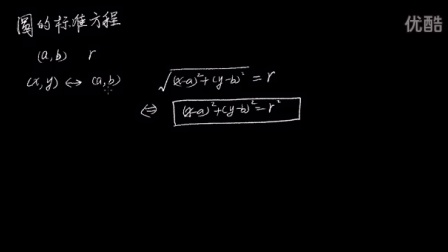 圆的标准方程
优酷
(a,b) r
(x,y) ↔ (a,b) √((x-a)²+(y-b)²) = r
⇔ (x-a)²+(y-b)²=r²